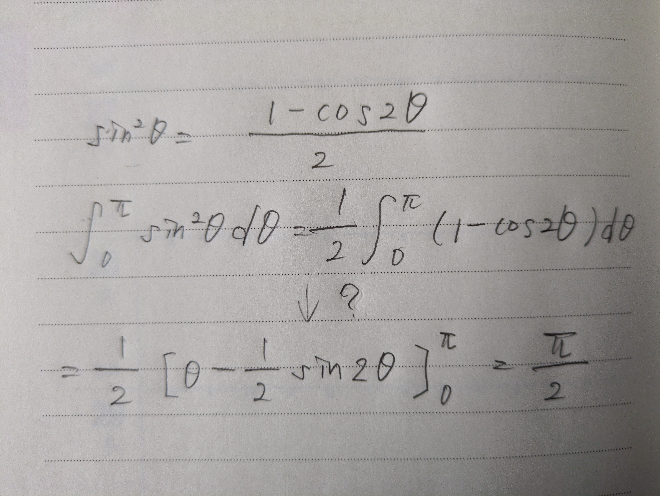 sin²θ = (1 - cos2θ)/2
∫₀^π sin²θ dθ = 1/2 ∫₀^π (1 - cos2θ) dθ
↓ ?
= 1/2 [θ - 1/2 sin2θ]₀^π = π/2